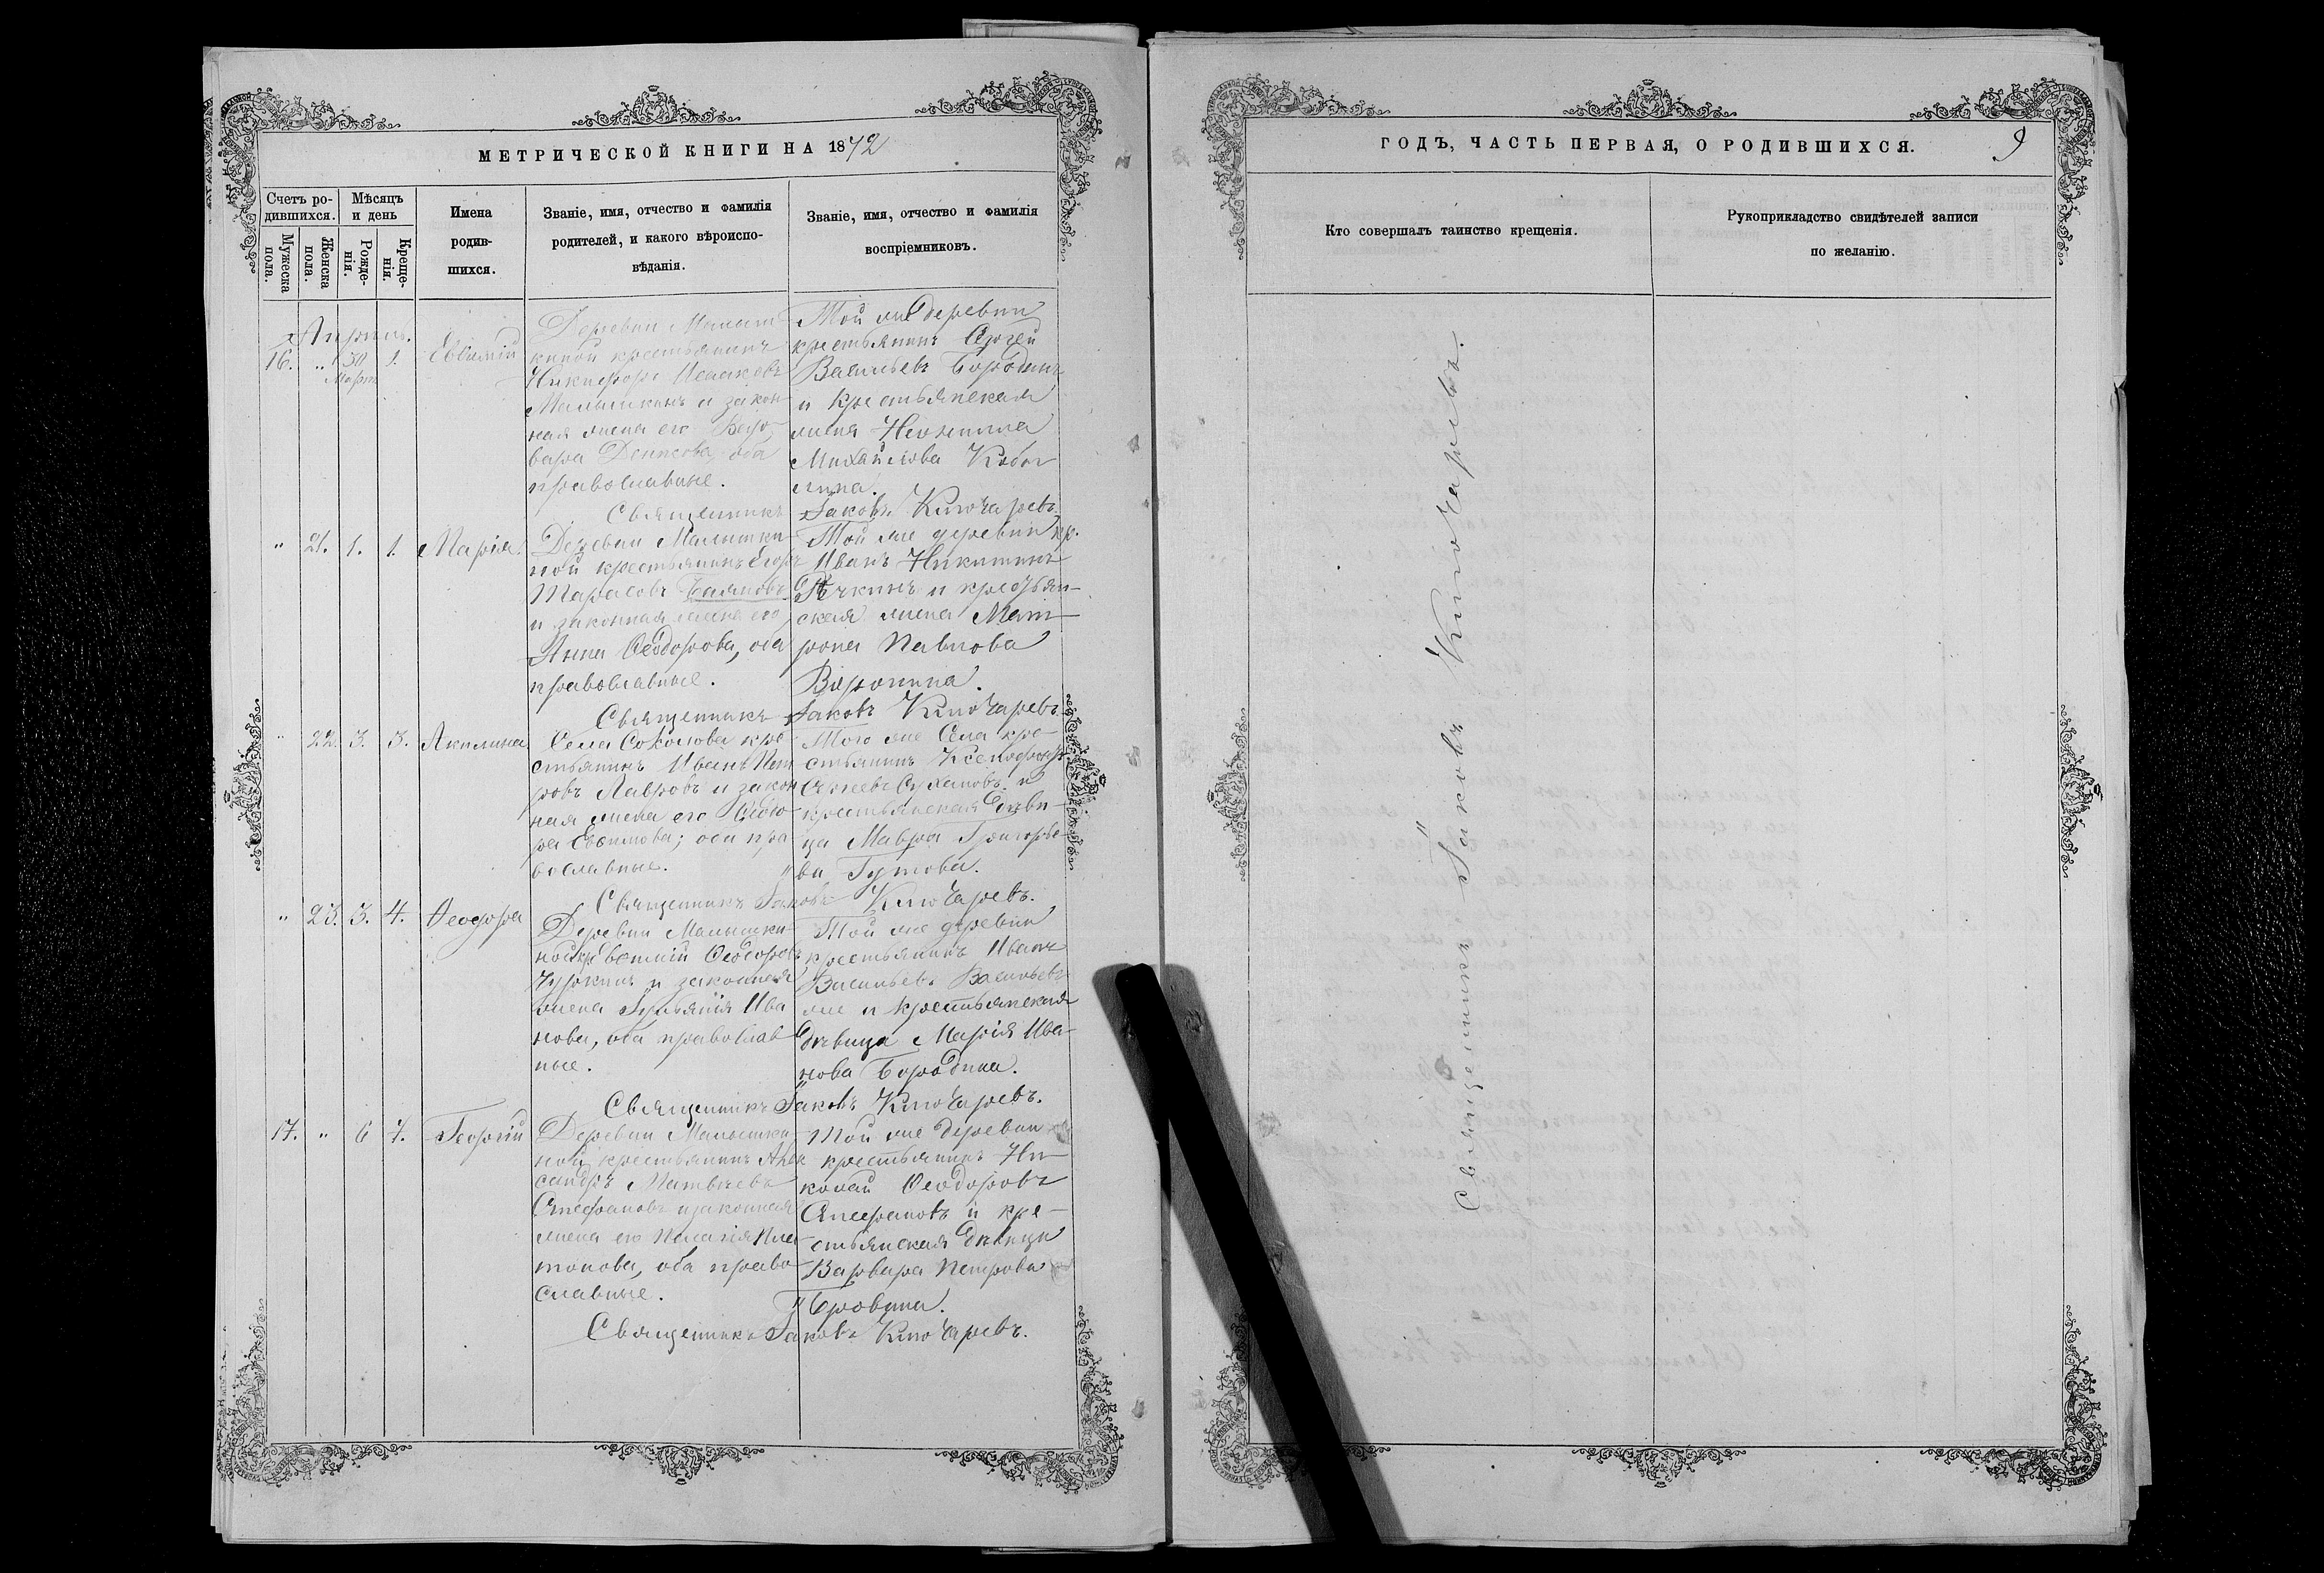 МЕТРИЧЕСКОЙ КНИГИ НА 1872
Счетъ ро-
дившихся.
Мѣсяцъ
и день
Мужеска
пола.
Женска
пола.
Рожде-
нія.
Креще-
нія.
Имена
родив-
шихся.
Званіе, имя, отчество и фамилія
родителей, и какого вѣроиспо-
вѣданія.
Званіе, имя, отчество и фамилія
воспріемниковъ.
Апрѣль.
16. „ 30 1.
Март
Евѳимій
Деревни Малыш
киной крестьянинъ
Никифоръ Исааковъ
Малышкинъ и закон
ная жена его Вар
вара Денисова оба
православные.
Той же деревни
крестьянинъ Сергей
Васильевъ Бородинъ
и крестьянская
жена Неонилла
Михайлова
Священникъ Іаковъ Ключаревъ
„ 21. 1. 1.
Марія.
Деревни Малышки
ной крестьянинъ Егоръ
Тарасовъ Баяновъ
и законная жена его
Анна Ѳеодорова, оба
православные.
Той же деревни кр.
Иванъ Никитинъ
и крестьян-
ская жена Мат
рона Павлова
Воронина.
Священникъ Іаковъ Ключаревъ
„ 22. 3. 3.
Акилина
Села Соколова кре-
стьянинъ Иванъ Пет
ровъ Лавровъ и закон
ная жена его Ѳеодо-
ра Евѳимова; оба пра
вославные.
Того же Села кре-
стьянинъ Ксенофонтъ
и
крестьянская дѣви-
ца Мавра Григорье-
ва Гутова.
Священникъ Іаковъ Ключаревъ.
„ 23. 3. 4.
Ѳеодора
Деревни Малышки
ной кр. Евѳимій Ѳеодоровъ
Чуркинъ и законная
жена Ива
нова, оба православ
ные.
Той же деревни
крестьянинъ Иванъ
Васильевъ Васильевъ
же и крестьянская
дѣвица Марія Ива-
нова Бородина.
Священникъ Іаковъ Ключаревъ.
17. „ 6 7.
Георгій
Деревни Малышки
ной крестьянинъ Алек
сандръ Матвѣевъ
Стефановъ и законная
жена его Пелагія Пла
тонова, оба право
славные.
Той же деревни
крестьянинъ Ни-
колай Ѳеодоровъ
Стефановъ и кре-
стьянская дѣвица
Варвара Петрова
Бровина.
Священникъ Іаковъ Ключаревъ.
ГОДЪ, ЧАСТЬ ПЕРВАЯ, О РОДИВШИХСЯ.
9
Кто совершалъ таинство крещенія.
Рукоприкладство свидѣтелей записи
по желанію.
Священникъ Іаковъ Ключаревъ.